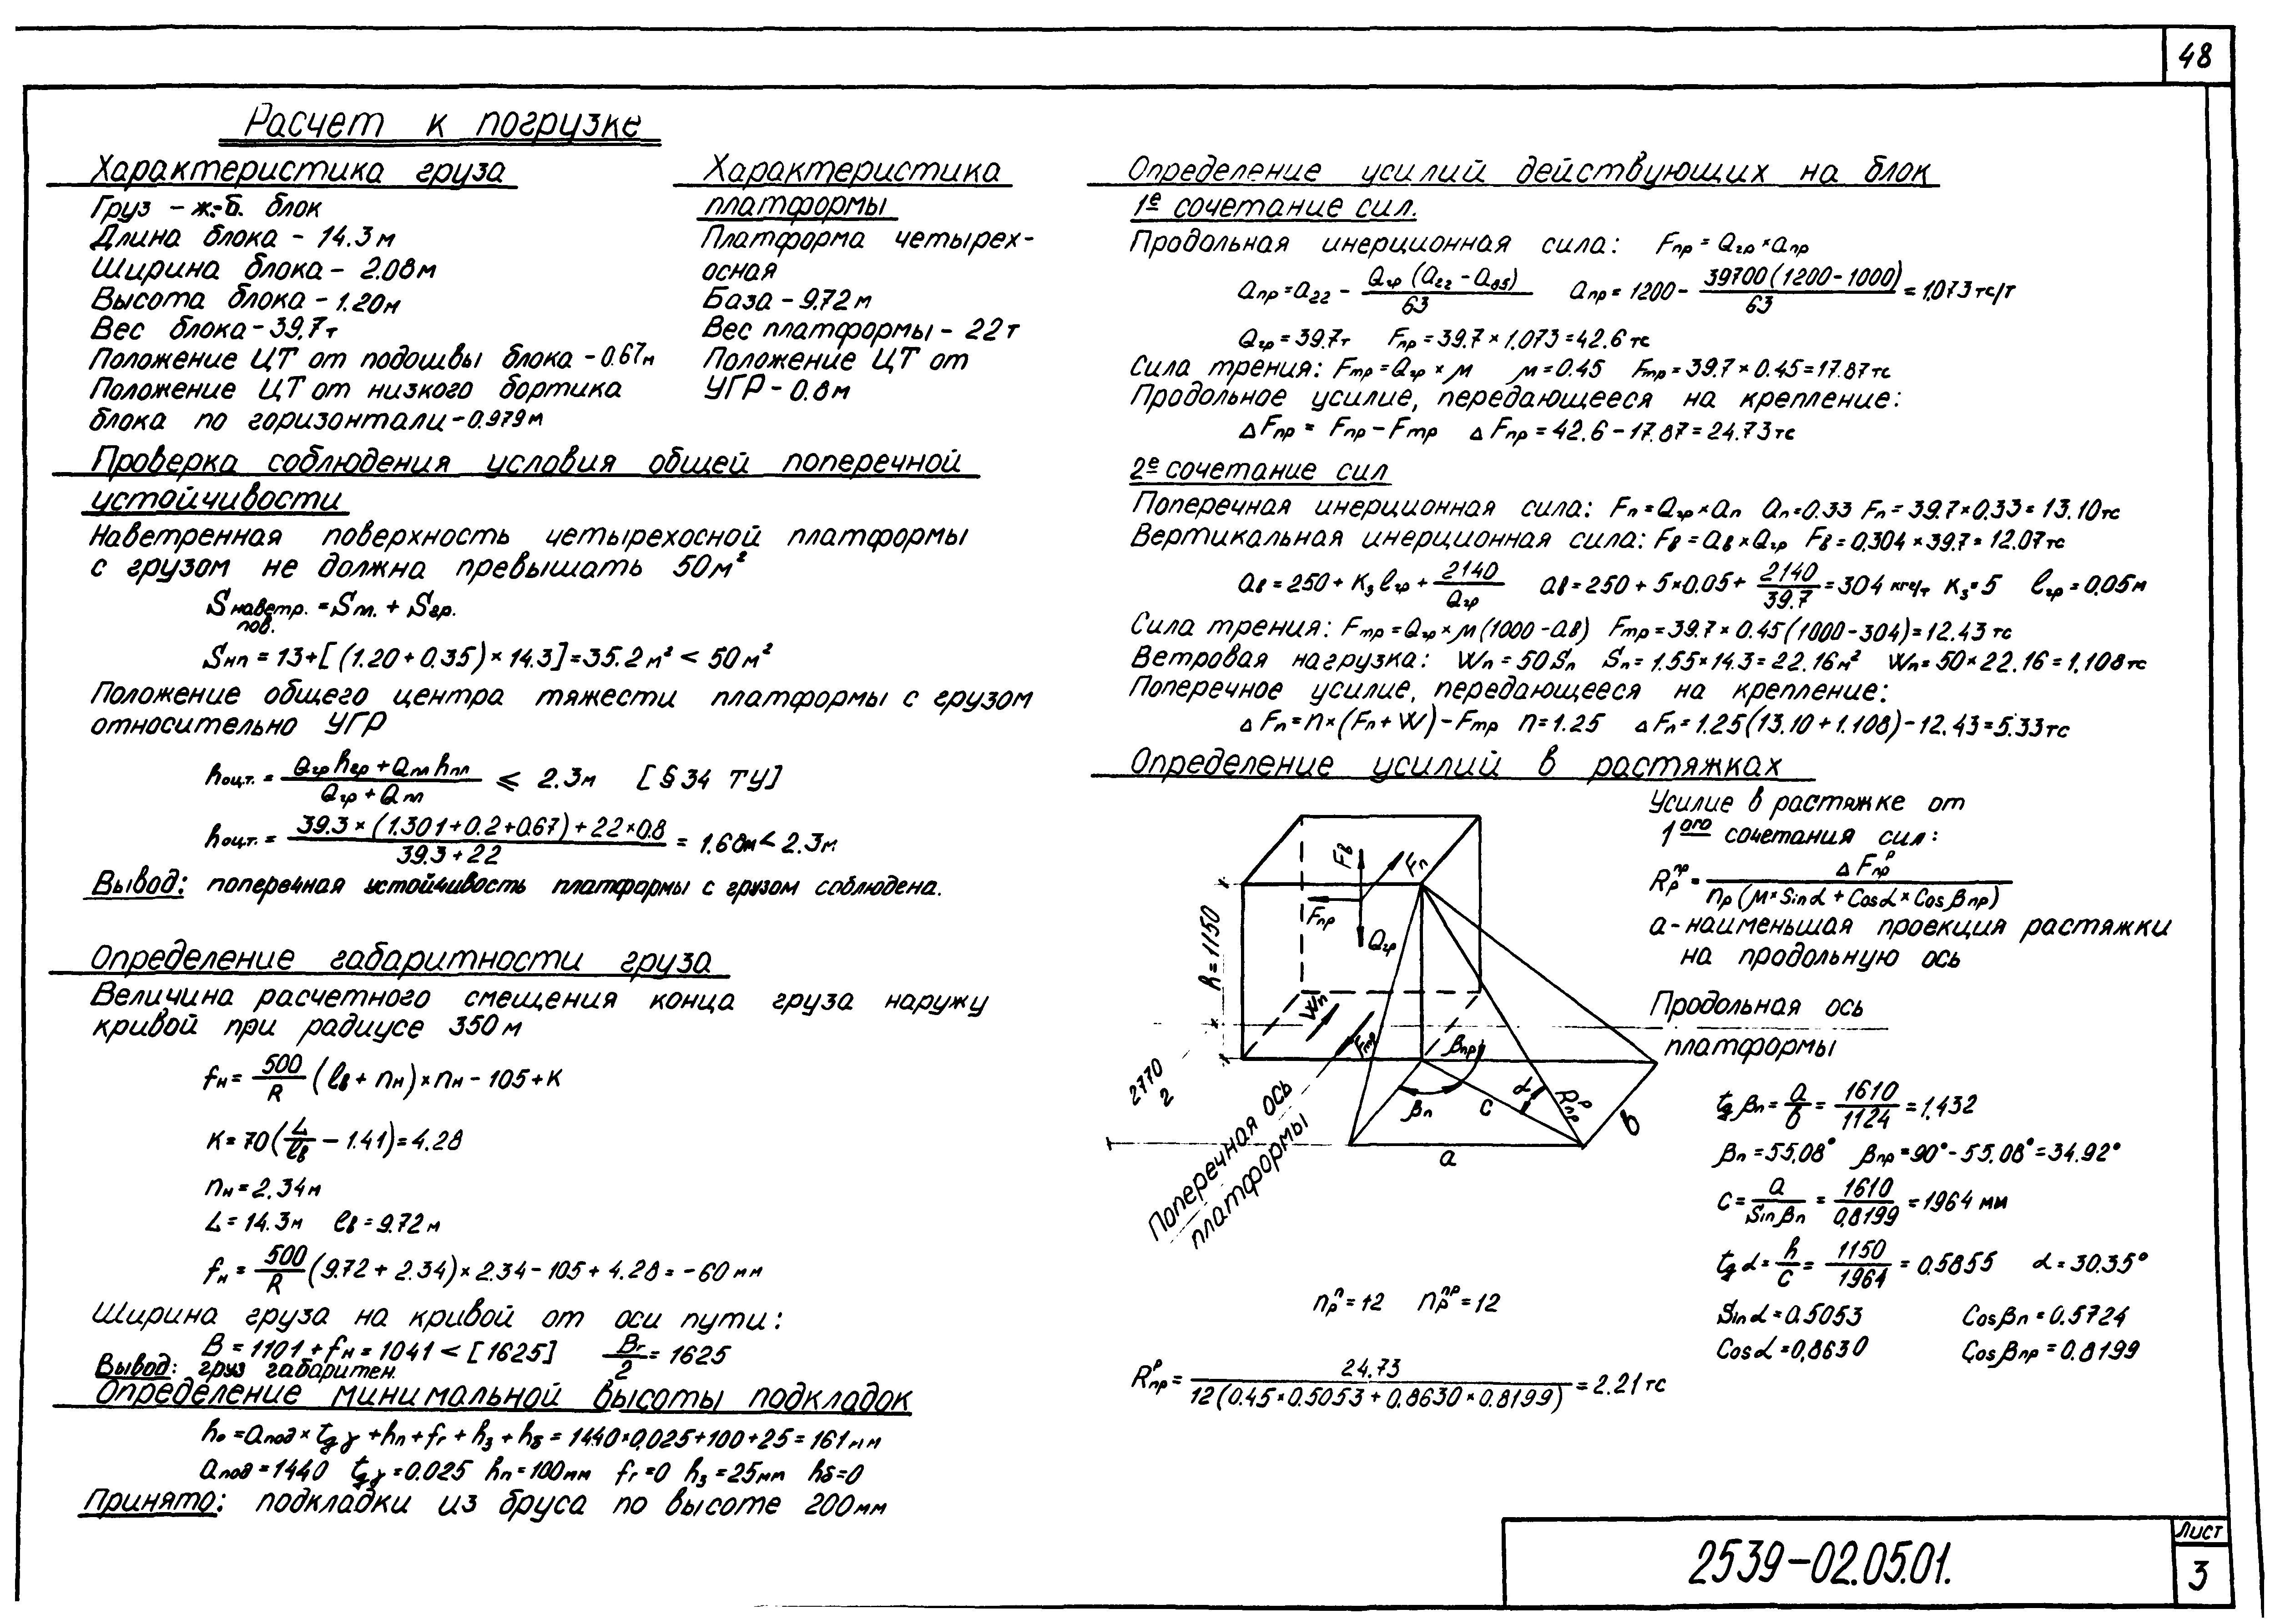 48
Расчет к погрузке
Характеристика груза
Груз - ж.-б. блок
Длина блока - 14.3м
Ширина блока - 2.08м
Высота блока - 1.20м
Вес блока - 39.7т
Положение ЦТ от подошвы блока - 0.67м
Положение ЦТ от низкого бортика
блока по горизонтали - 0.979м
Характеристика
платформы
Платформа четырех-
осная
База - 9.72м
Вес платформы - 22т
Положение ЦТ от
УГР - 0.8м
Проверка соблюдения условия общей поперечной
устойчивости
Наветренная поверхность четырехосной платформы
с грузом не должна превышать 50м²
Sнаветр. пов. = Sпл. + Sгр.
Sнп = 13+[(1.20+0.35)×14.3]=35.2м² < 50м²
Положение общего центра тяжести платформы с грузом
относительно УГР
hоц.т. = (Qгр hгр + Qпл hпл)/(Qгр + Qпл) ⩽ 2.3м [§34 ТУ]
hоц.т. = (39.3×(1.301+0.2+0.67)+22×0.8)/(39.3+22) = 1.68м < 2.3м
Вывод: поперечная устойчивость платформы с грузом соблюдена.
Определение габаритности груза
Величина расчетного смещения конца груза наружу
кривой при радиусе 350м
fн = 500/R (ℓв + nн)×nн - 105 + К
К = 70(L/ℓв - 1.41) = 4.28
nн = 2.34м
L = 14.3м ℓв = 9.72м
fн = 500/R (9.72 + 2.34)×2.34 - 105 + 4.28 = -60мм
Ширина груза на кривой от оси пути:
В = 1101 + fн = 1041 < [1625] Вг/2 = 1625
Вывод: груз габаритен.
Определение минимальной высоты подкладок
hо = aпод × tgγ + hп + fг + hз + hб = 1440×0,025+100+25=161мм
aпод = 1440 tgγ = 0.025 hп = 100мм fг = 0 hз = 25мм hб = 0
Принято: подкладки из бруса по высоте 200мм
Определение усилий действующих на блок
1е сочетание сил.
Продольная инерционная сила: Fпр = Qгр × aпр
aпр = a22 - Qгр(a22 - a85)/63 aпр = 1200 - 39700(1200-1000)/63 = 1,073тс/т
Qгр = 39.7т Fпр = 39.7 × 1,073 = 42.6тс
Сила трения: Fтр = Qгр × м м = 0.45 Fтр = 39.7 × 0.45 = 17.87тс
Продольное усилие, передающееся на крепление:
ΔFпр = Fпр - Fтр ΔFпр = 42.6 - 17.87 = 24.73тс
2е сочетание сил
Поперечная инерционная сила: Fп = Qгр × aп aп = 0.33 Fп = 39.7×0.33 = 13.10тс
Вертикальная инерционная сила: Fв = aв × Qгр Fв = 0,304 × 39.7 = 12.07тс
aв = 250 + Кз ℓгр + 2140/Qгр aв = 250 + 5×0.05 + 2140/39.7 = 304 кгс/т Кз = 5 ℓгр = 0,05м
Сила трения: Fтр = Qгр × м(1000 - aв) Fтр = 39.7 × 0.45(1000-304) = 12.43тс
Ветровая нагрузка: Wп = 50Sп Sп = 1.55×14.3 = 22.16м² Wп = 50×22.16 = 1,108тс
Поперечное усилие, передающееся на крепление:
ΔFп = n×(Fп + W) - Fтр n = 1.25 ΔFп = 1.25(13.10+1.108) - 12.43 = 5.33тс
Определение усилий в растяжках
Усилие в растяжке от
1ого сочетания сил:
Rрпр = ΔFпрр/(nр(м×Sinα + Cosα×Cosβпр))
a - наименьшая проекция растяжки
на продольную ось
Продольная ось
платформы
Fв
Fп
Fпр
Qгр
h=1150
Wп
Fтр
βпр
2770/2
βп
c
α
Rпрр
в
a
Поперечная ось
платформы
tgβп = a/в = 1610/1124 = 1,432
βп = 55,08° βпр = 90° - 55,08° = 34.92°
c = a/Sinβп = 1610/0,8199 = 1964 мм
tgα = h/c = 1150/1964 = 0.5855 α = 30.35°
Sinα = 0.5053 Cosβп = 0.5724
Cosα = 0,8630 Cosβпр = 0.8199
nрп = 12 nрпр = 12
Rпрр = 24.73/(12(0.45×0.5053 + 0.8630×0.8199)) = 2.21тс
2539-02.05.01.
Лист
3